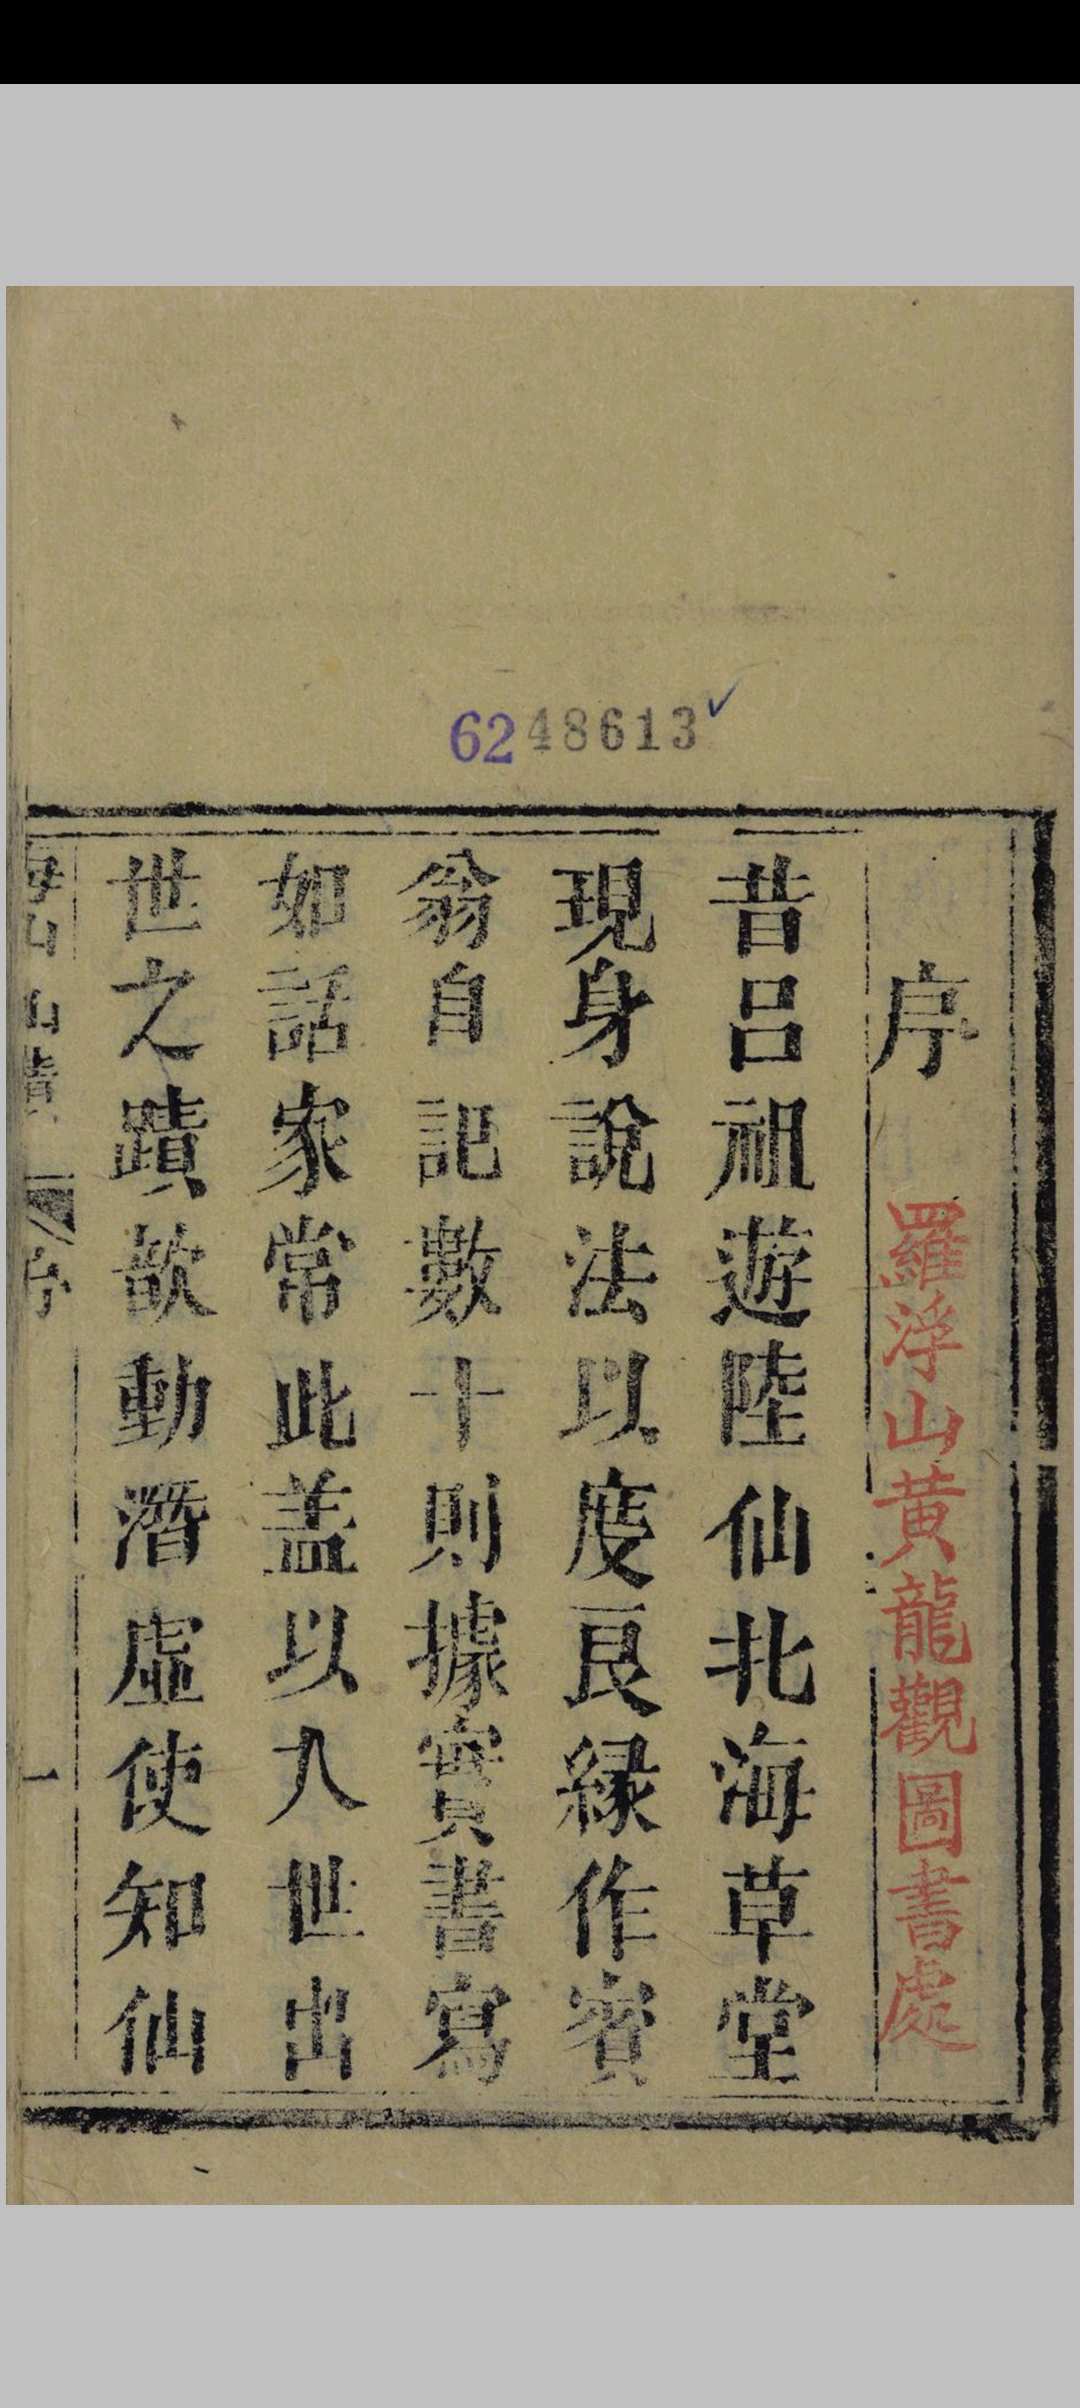 6248613
序
羅浮山黄龍觀圖書處
昔呂祖遊陸仙北海草堂
現身說法以度良緣作賓
翁自記數十則據實書寫
如話家常此盖以入世出
世之蹟歆動潛虛使知仙
海山仙蹟 序 一